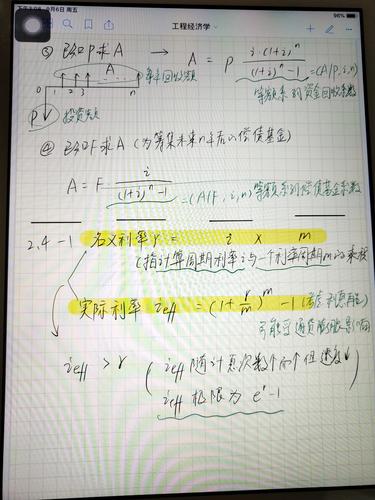 9月6日 周五
96%
工程经济学
③ 已知P求A → A = P i·(1+i)^n / (1+i)^n - 1 = (A/P, i, n)
A 每年回收额 等额系列资金回收系数
0 1 2 3 n
P 投资额
④ 已知F求A (为筹集未来n年后的偿债基金)
A = F i / (1+i)^n - 1 = (A/F, i, n) 等额系列偿债基金系数
2.4-1 名义利率 r = i × m
(指计算周期利率i与一个利率周期m的乘积
实际利率 i_eff = (1 + r/m)^m - 1 (考虑利息再生)
可能受通货膨胀影响
i_eff > r (i_eff 随计息次数个 但速度↓
i_eff 极限为 e^r - 1